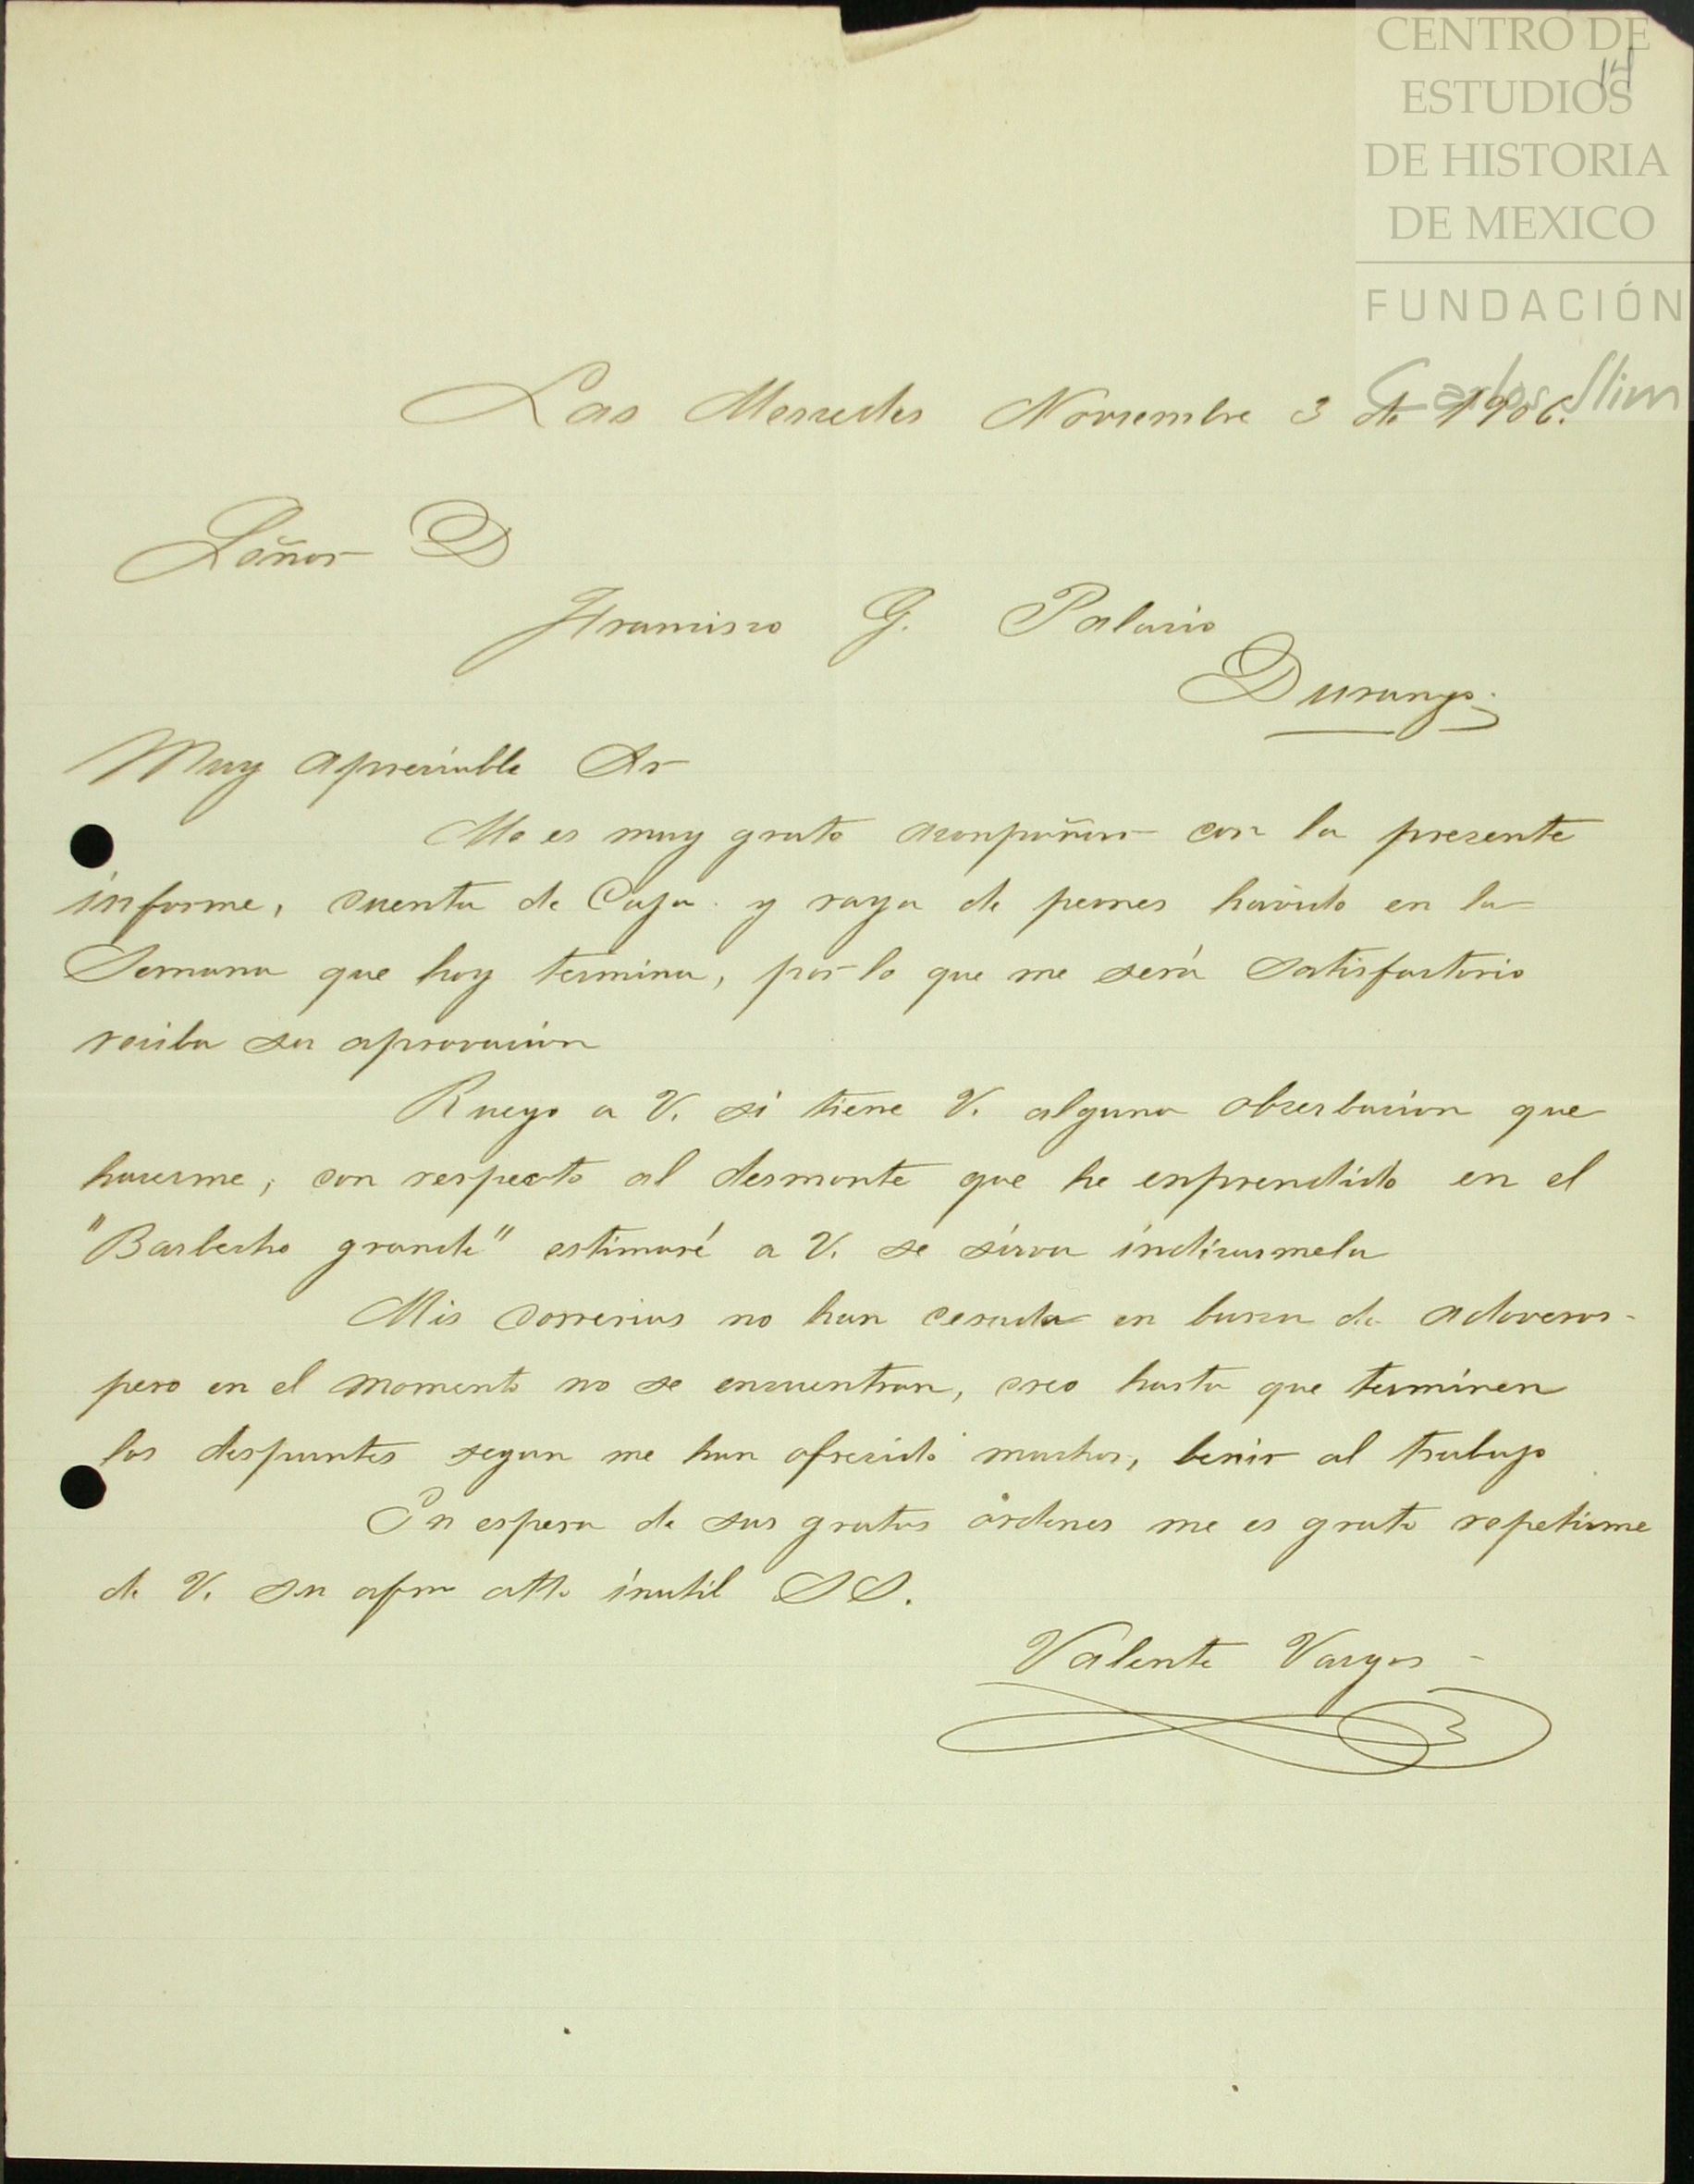 CENTRO DE
ESTUDIOS
DE HISTORIA
DE MEXICO
FUNDACIÓN
Carlos Slim
14
Las Mercedes Noviembre 3 de 1906.
Señor D
Francisco G. Palacio
Durango.
Muy apreciable Sr
Me es muy grato aconpañar con la presente
informe, cuenta de Caja y raya de peones havido en la
Semana que hoy termina, por lo que me será satisfactorio
reciba su aprovacion
Ruego a V. si tiene V. alguna obserbacion que
hacerme, con respecto al desmonte que he enprendido en el
"Barbecho grande" estimaré a V. se sirva indicarmela
Mis correrias no han cesado en busca de adoveros
pero en el momento no se encuentran, creo hasta que terminen
los despuntes segun me han ofrecido muchos, benir al trabajo
En espera de sus gratas ordenes me es grato repetirme
de V. su afmo atto inutil SS.
Valente Vargas